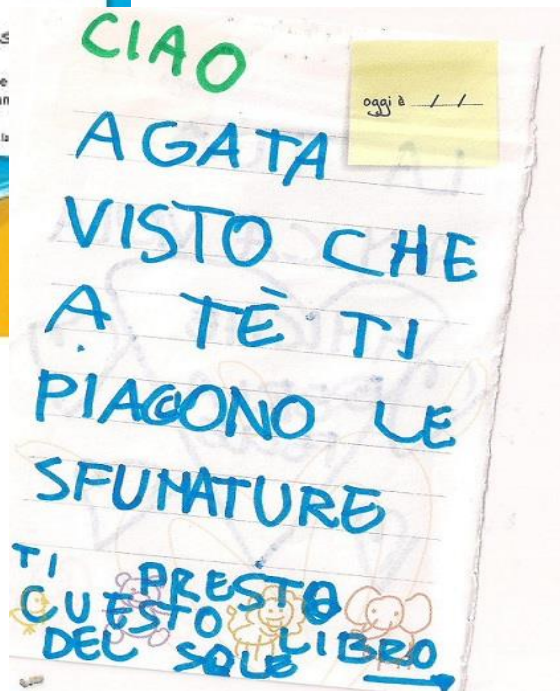 CIAO
oggi è / /
AGATA
VISTO CHE
A TÈ TI
PIACCONO LE
SFUMATURE
TI PRESTO
CUESTO LIBRO
DEL SOLE